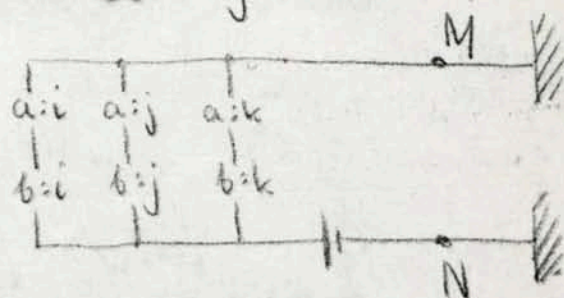 M
a:i a:j a:k
b:i b:j b:k
N